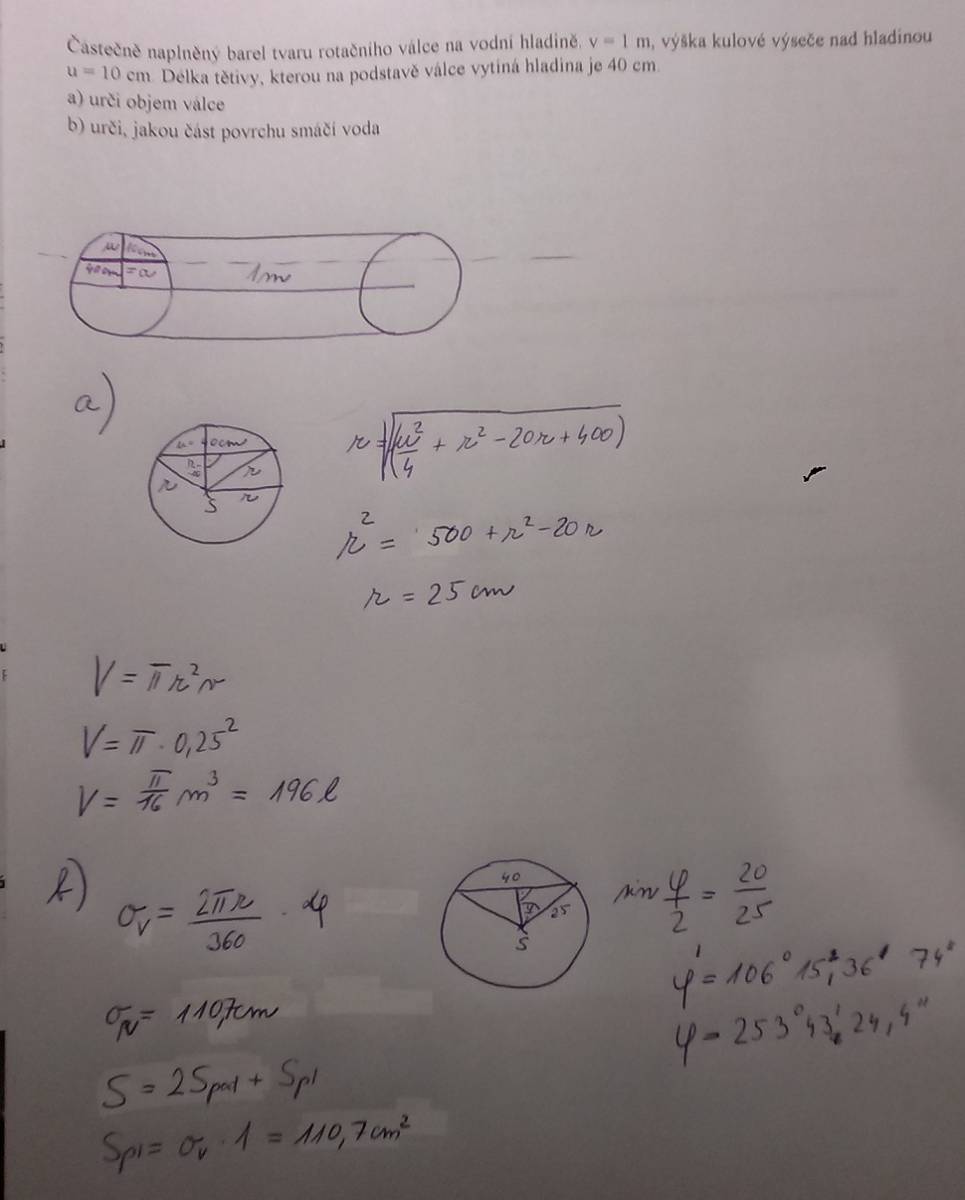 Částečně naplněný barel tvaru rotačního válce na vodní hladině. v = 1 m, výška kulové výseče nad hladinou
u = 10 cm. Délka tětivy, kterou na podstavě válce vytíná hladina je 40 cm.
a) urči objem válce
b) urči, jakou část povrchu smáčí voda
u 10cm
40cm = a
1m
a)
= 40cm
r
r
r
S
r = √(u²/4 + r² - 20r + 400)
r² = 500 + r² - 20r
r = 25 cm
V = πr²v
V = π · 0,25²
V = π/16 m³ = 196 l
b)
σv = 2πr/360 · φ
40
25
S
sin φ/2 = 20/25
φ' = 106° 15' 36' 74"
σv = 110,7cm
φ = 253° 43' 24,4"
S = 2Spod + Spl
Spl = σv · 1 = 110,7 cm²